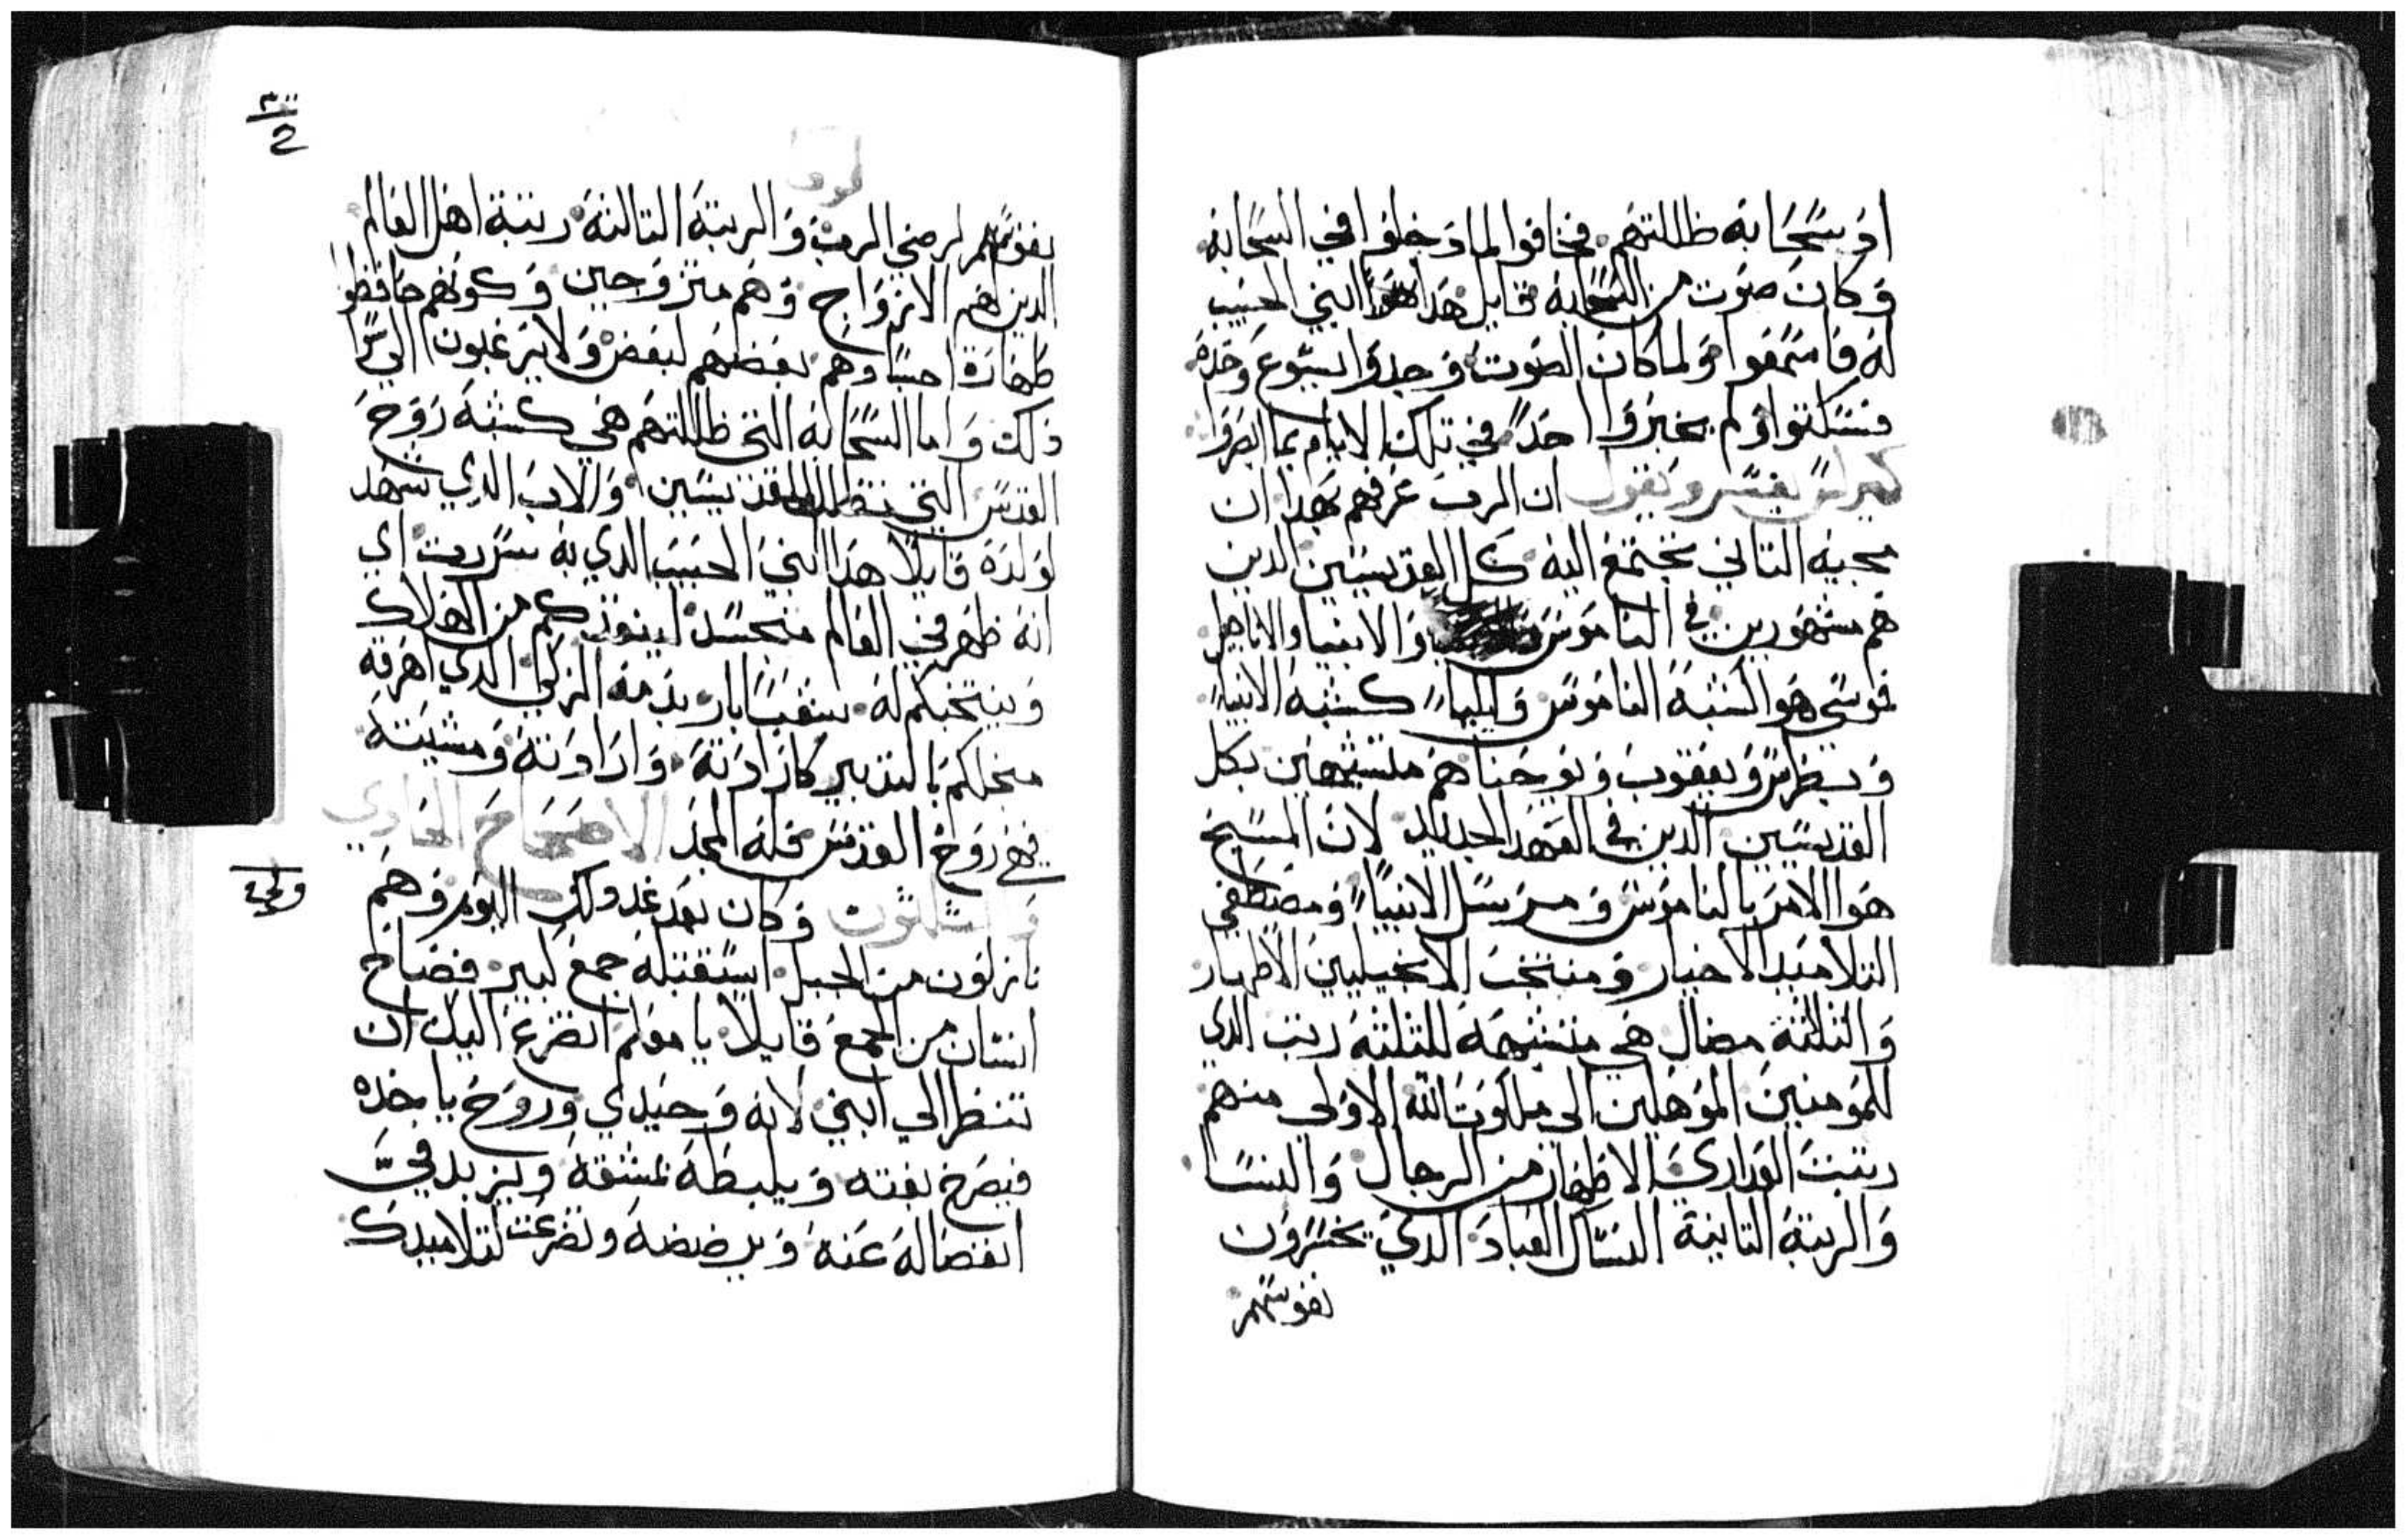 اذ سحابه ظللتهم فخافوا لما دخلوا في السحابه
وكان صوت من السحابه قايل هدا هو ابني الحبيب
له فاسمعوا ولما كان الصوت وجدوا ايسوع وحده
فسكتوا ولم يخبروا احدا في تلك الايام بما ابصروا
كيرلس يفسر ويقول ان الرب عرفهم بهدا ان
مجيه التاني تجتمع اليه كل القديسين الدين
هم مشهورين في الناموس والانبيا والاناجيل
فموسى هو كشبه الناموس وايليا كشبه الانبيا
وبطرس ويعقوب ويوحنا هم متشبهين بكل
القديسين الدين في العهد الجديد لان المسيح
هو الامر بالناموس ومرسل الانبيا ومصطفي
التلاميد الاخيار ومنتخب الانجيليين الاطهار
والتلتة مضال هي متشبهة للتلته رتب الدي
للمومنين الموهلين الي ملكوت الله الاولى منهم
رتبت العداري الاطهار من الرجال والنسا
والرتبة التانية النساك العباد الدي يخسرون
نفوسهم
لوقا
نفوسهم لرضي الرب والرتبة التالتة رتبة اهل العالم
الدين هم الازواج وهم متزوجين وكونهم حافظوا
طهارة اجسادهم بعضهم لبعض ولا يرغبون الي
ذلك واما السحابه التي ظللتهم هي كشبه روح
القدس التي تظلل القديسين والاب الدي شهد
لولده قايلا هدا ابني الحبيب الدي به سررت اي
انه ظهر في العالم متجسد لينقذكم من الهلاك
وينتخبكم له شعبا بارا بدمه الزكي الدي اهرقه
منجلكم بالتدبير كارادته وارادته ومشيته
فهي روح القدس فله المجد الاصحاح الحادي
والتلتون وكان بعد غد دلك اليوم وهم
نازلون من الجبل استقبله جمع كبير فصاح
انسان من الجمع قايلا يا معلم اتضرع اليك ان
تنظر الي ابني لانه وحيدي وروح ياخده
فيصرخ بغته ويلبطه بمشقة ويزبد في
انفصاله عنه ويرضضه وتضرعت لتلاميدك